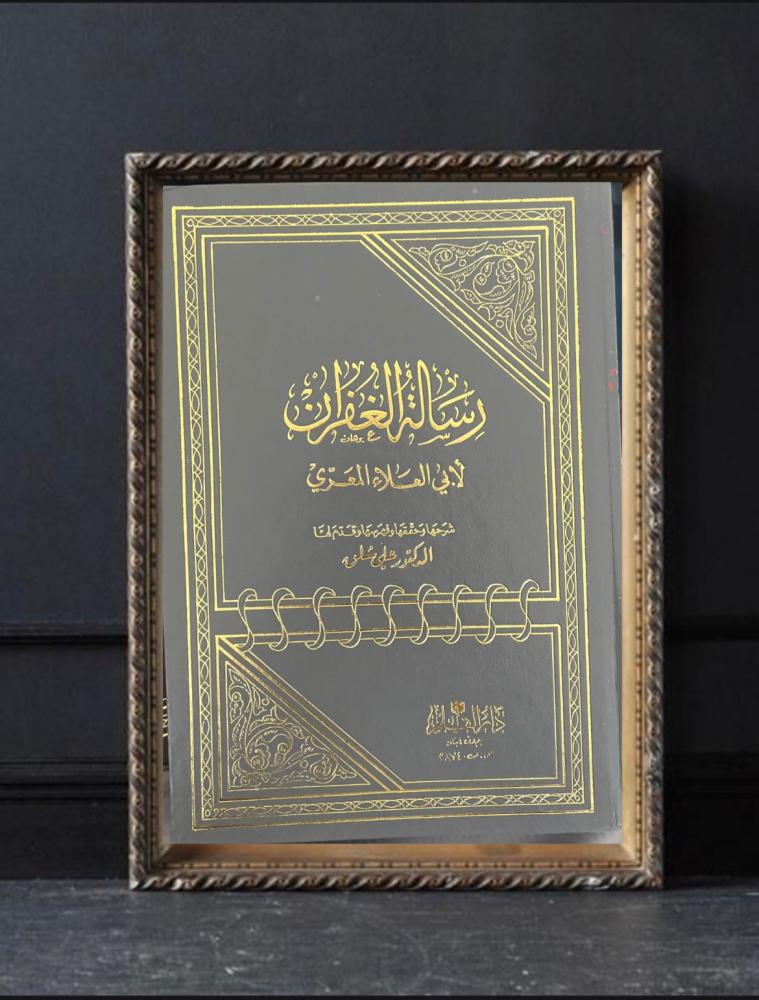 رسالة الغفران
لأبي العلاء المعري
شرحها وحققها وفهرسها وقدم لها
الدكتور علي شلق
دار القلم
بيروت لبنان
ص.ب ٣٨٧٤